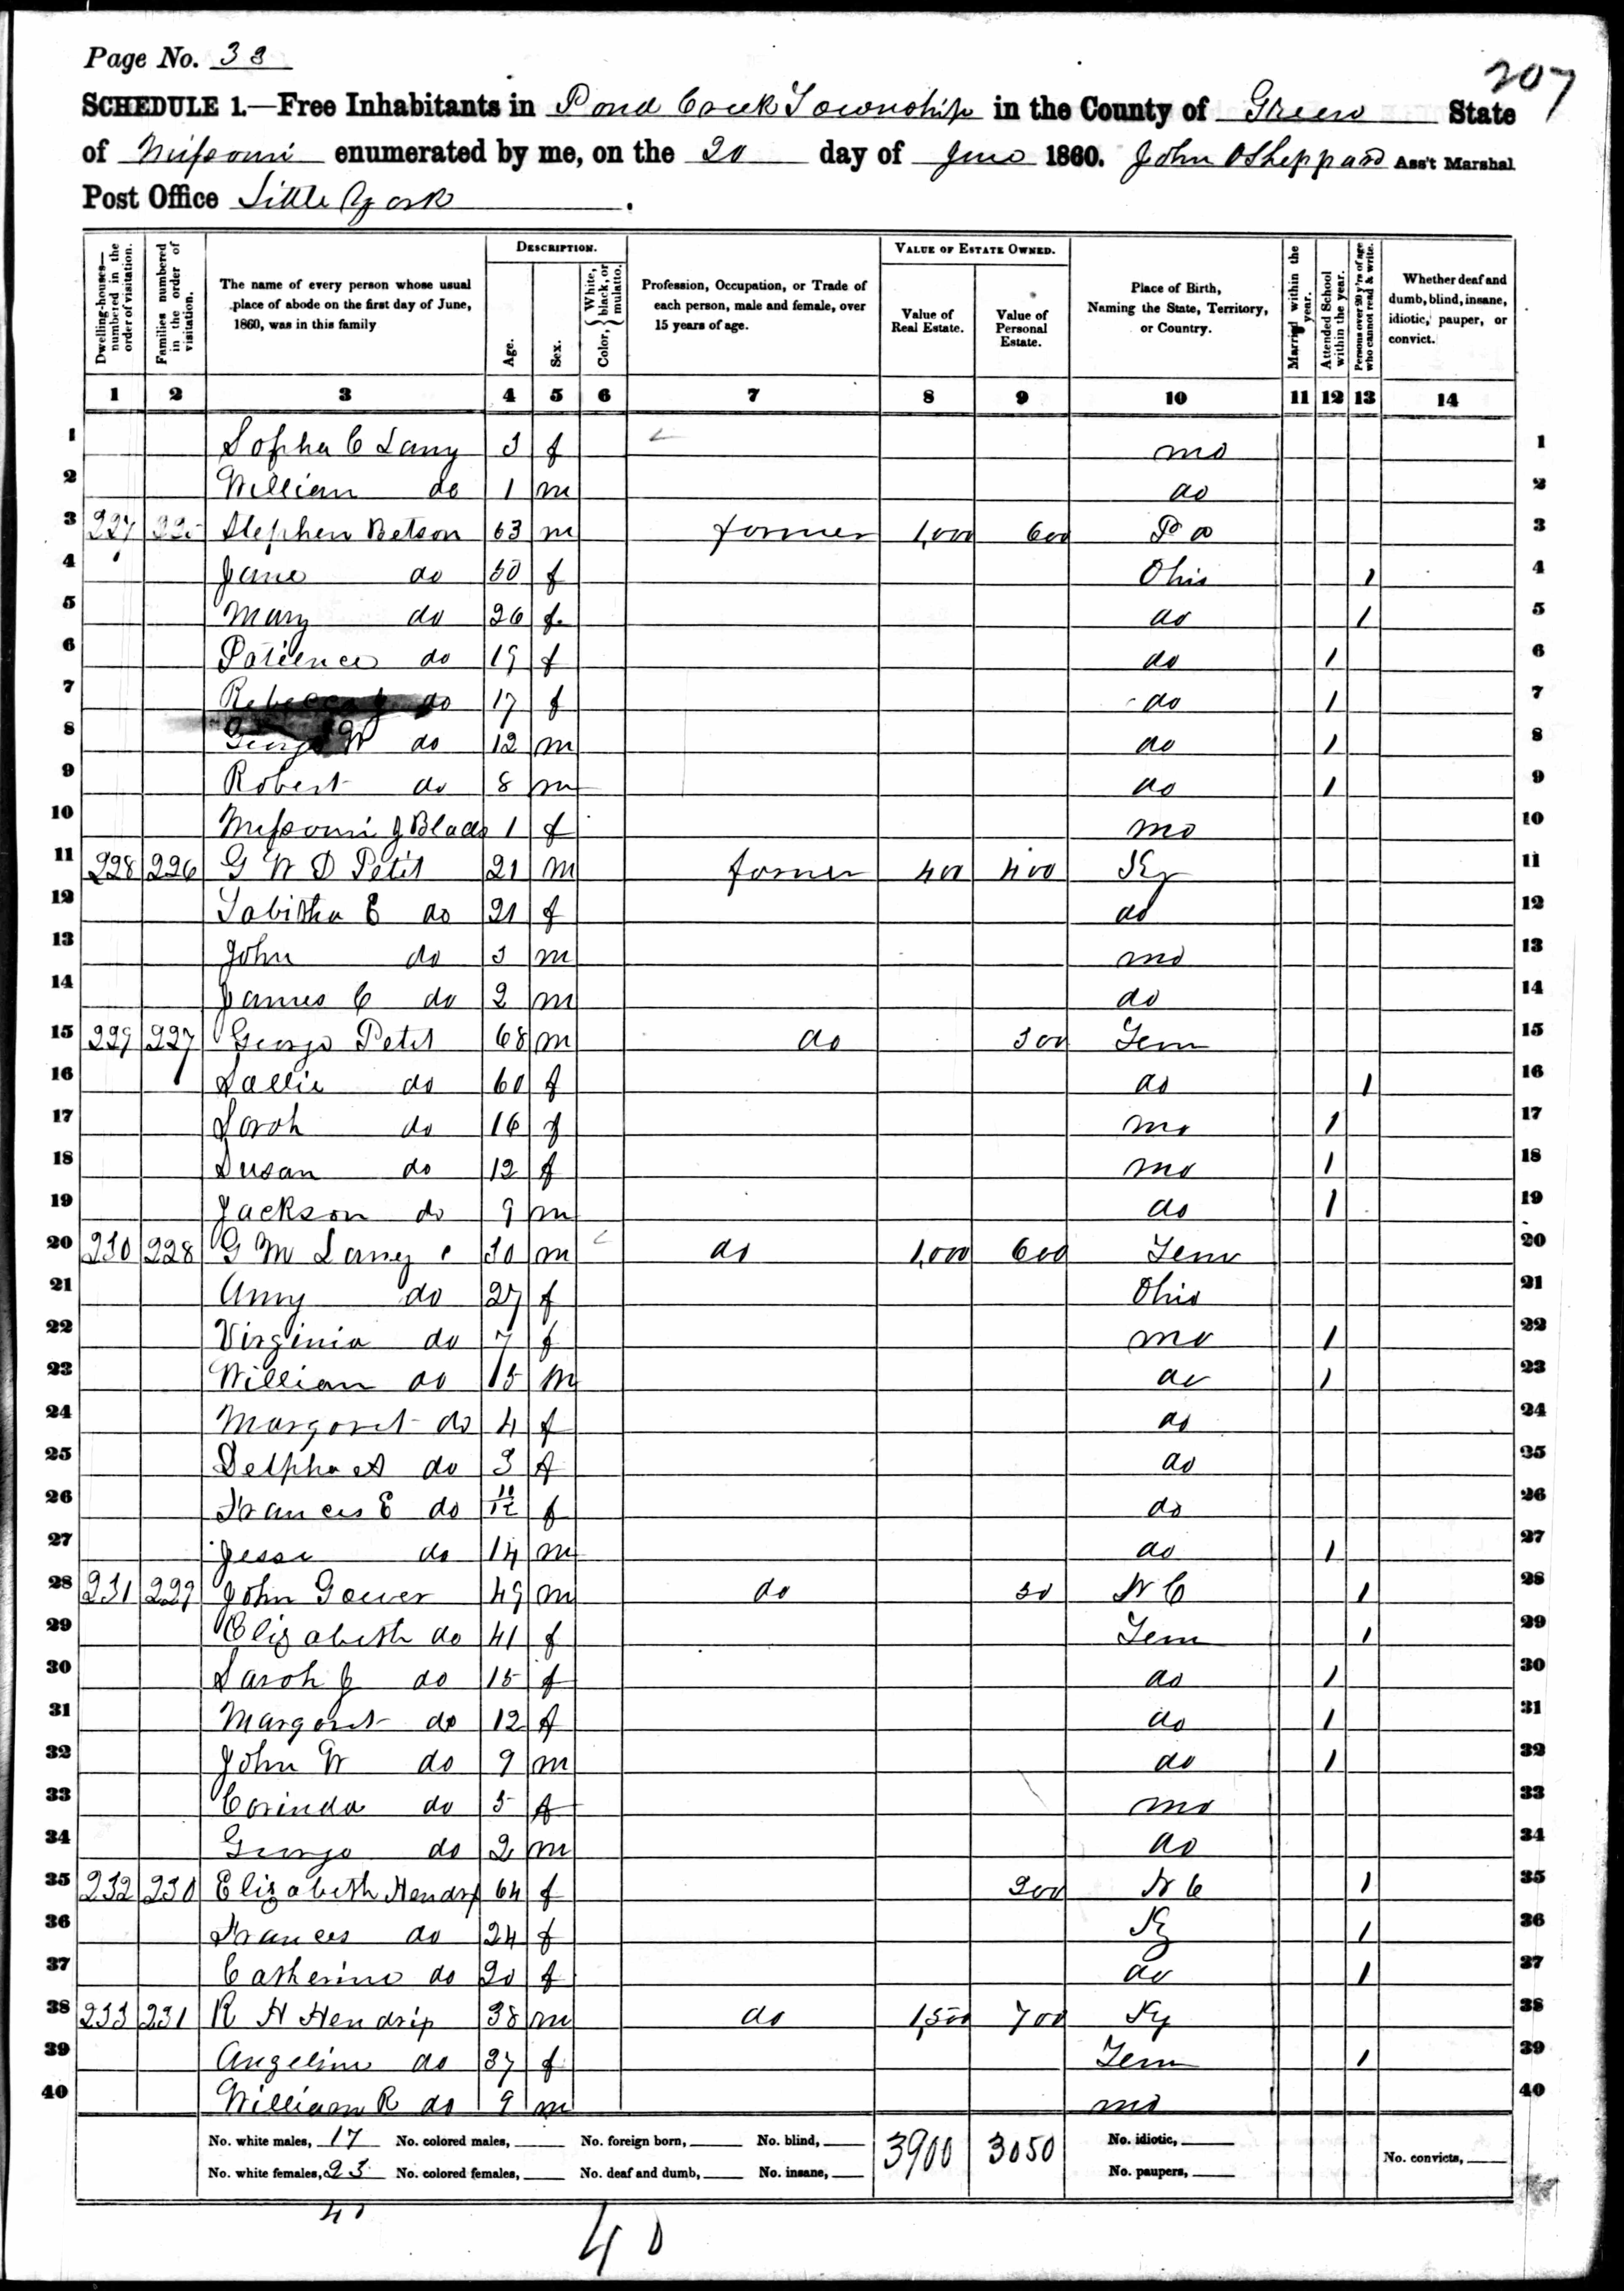 Page No. 33
207
SCHEDULE 1.—Free Inhabitants in Pond Creek Township in the County of Green State
of Missouri enumerated by me, on the 20 day of June 1860. John O Sheppard Ass't Marshal
Post Office Little York.
DESCRIPTION. VALUE OF ESTATE OWNED.
Dwelling-houses—numbered in the order of visitation. Families numbered in the order of visitation. The name of every person whose usual place of abode on the first day of June, 1860, was in this family Age. Sex. Color, {White, black, or mulatto. Profession, Occupation, or Trade of each person, male and female, over 15 years of age. Value of Real Estate. Value of Personal Estate. Place of Birth, Naming the State, Territory, or Country. Married within the year. Attended School within the year. Persons over 20 y'rs of age who cannot read & write. Whether deaf and dumb, blind, insane, idiotic, pauper, or convict.
1 2 3 4 5 6 7 8 9 10 11 12 13 14
1 Sopha C Lany 3 f mo 1
2 William do 1 m do 2
3 227 225 Stephen Betson 63 m farmer 1,000 600 Pa 3
4 Jane do 50 f Ohio 1 4
5 Mary do 26 f do 1 5
6 Patience do 19 f do 1 6
7 Rebecca J do 17 f do 1 7
8 George W do 12 m do 1 8
9 Robert do 8 m do 1 9
10 Missouri J Blade 1 f mo 10
11 228 226 G W D Petit 21 m farmer 400 400 Ky 11
12 Tabitha E do 21 f do 12
13 John do 3 m mo 13
14 James C do 2 m do 14
15 229 227 George Petit 68 m do 300 Tenn 15
16 Sallie do 60 f do 1 16
17 Sarah do 16 f mo 1 17
18 Susan do 12 f mo 1 18
19 Jackson do 9 m do 1 19
20 230 228 G M Laney 30 m do 1,000 600 Tenn 20
21 Amy do 27 f Ohio 21
22 Virginia do 7 f mo 1 22
23 William do 15 m do 1 23
24 Margaret do 4 f do 24
25 Delpha A do 3 f do 25
26 Frances E do 10/12 f do 26
27 Jesse do 14 m do 1 27
28 231 229 John Gower 49 m do 50 N C 1 28
29 Elizabeth do 41 f Tenn 1 29
30 Sarah J do 15 f do 1 30
31 Margaret do 12 f do 1 31
32 John W do 9 m do 1 32
33 Corinda do 5 f mo 33
34 George do 2 m do 34
35 232 230 Elizabeth Hendrix 64 f 200 N C 1 35
36 Frances do 24 f Ky 1 36
37 Catherine do 20 f do 1 37
38 233 231 R H Hendrix 38 m do 1,500 700 Ky 38
39 Angeline do 37 f Tenn 1 39
40 William R do 9 m mo 40
No. white males, 17 No. colored males, No. foreign born, No. blind, 3900 3050 No. idiotic,
No. white females, 23 No. colored females, No. deaf and dumb, No. insane, No. paupers, No. convicts,
40
40